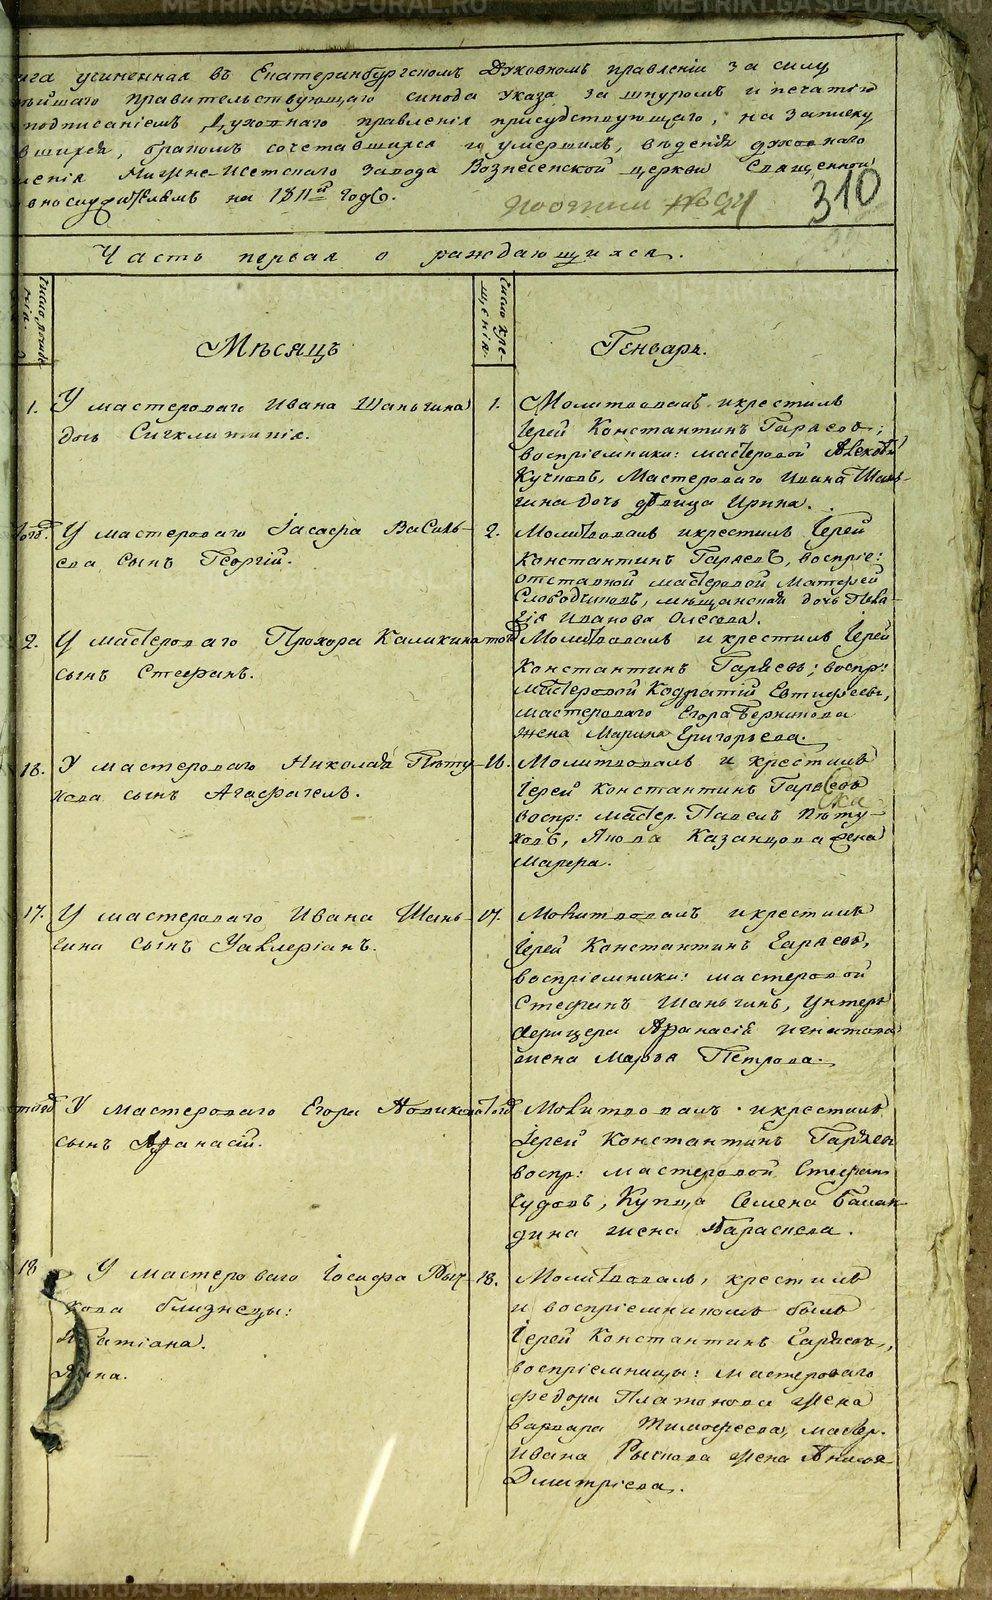 METRIKI.GASO-URAL.RU
ига учиненная въ Екатеринбургскомъ Духовномъ правленіи за силу
правительствующаго синода указа, за шнуромъ и печатью
подписаніемъ Духовнаго правленія присудствующаго, на записку
вшихся, бракомъ сочетавшихся и умершихъ, въденія духовнаго
Нижне-Исетскаго завода Вознесенской церкви Священной
на 1811й годъ.
310
Часть первая о раждающихся.
Число рожде-
нія.
Мѣсяцъ
Число кре-
щенія.
Генварь.
1. У мастероваго Ивана Шаньгина
дочь Сигклитикія.
1. Молитвовалъ и крестилъ
Іерей Константинъ Гаряевъ;
воспріемники: мастеровой
Мастероваго Ивана Шань-
гина дочь дѣвица Ирина.
Тогo. У мастероваго Іасафа Василь-
ева сынъ Георгій.
2. Молитвовалъ и крестилъ Іерей
Константинъ Гаряевъ, воспріе:
отставной мастеровой Матфей
Слободчиковъ, мѣщанская дочь Пела-
гія Иванова
2. У мастероваго Прохора Каликина
сынъ Стефанъ.
того Молитвовалъ и крестилъ Іерей
Константинъ Гаряевъ; воспр:
мастеровой Кодратій Евтифеевъ,
мастероваго Егора
жена Марина Григорьева.
16. У мастероваго Николая Пѣту-
хова сынъ Агафагелъ.
16. Молитвовалъ и крестилъ
Іерей Константинъ Гаряевъ
воспр: мастер. Павелъ Пѣту-
ховъ, Якова Казанцова жена
Марфа.
17. У мастероваго Ивана Шань-
гина сынъ Уавлеріанъ.
17. Молитвовалъ и крестилъ
Іерей Константинъ Гаряевъ,
воспріемники: мастеровой
Стефанъ Шаньгинъ, Унтеръ
Афанасія Игнатова
жена Марья Петрова.
того У мастероваго Егора Новикова
сынъ Афанасій.
того Молитвовалъ и крестилъ
Іерей Константинъ Гаряевъ
воспр: мастеровой Стефанъ
Чудовъ, Купца Семена Балан-
дина жена Параскева.
18 У мастероваго Іосифа Рыч-
кова близнецы:
Татіана.
Анна.
18. Молитвовалъ, крестилъ
и воспріемникомъ былъ
Іерей Константинъ Гаряевъ,
воспріемницы: мастероваго
Федора Платонова жена
Варвара Тимофеева, мастер.
Ивана Рыскова жена
Дмитріева.
METRIKI.GASO-URAL.RU